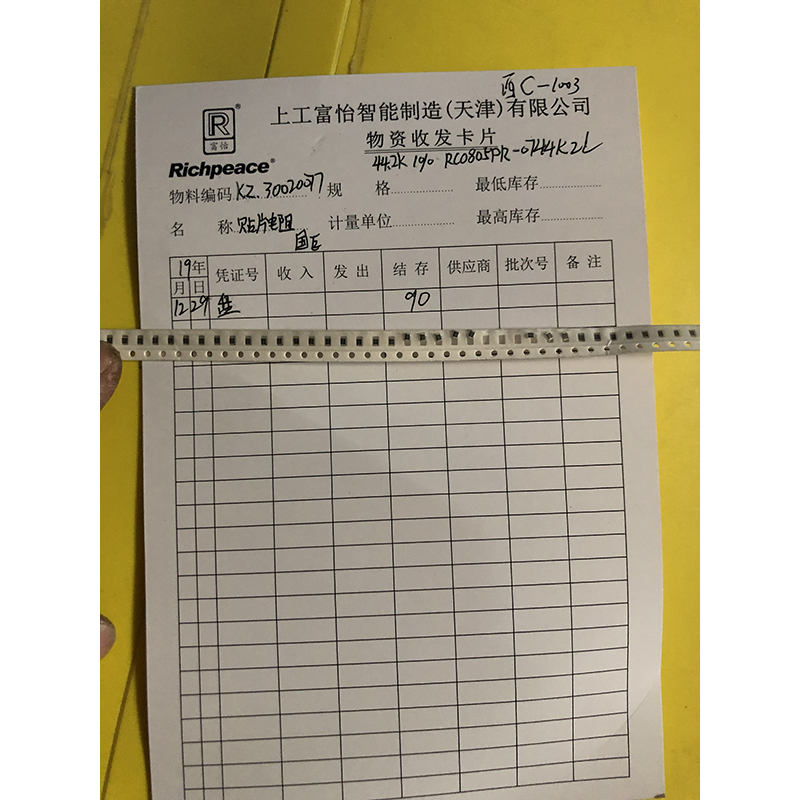 西C-1003
R®
富怡
上工富怡智能制造(天津)有限公司
物资收发卡片
Richpeace®
44.2K 1%
物料编码 KZ.3002007 规 格 最低库存
名 称 贴片电阻 计量单位 最高库存
国巨
19年 凭证号 收入 发出 结存 供应商 批次号 备注
月 日
12 29 盘 90